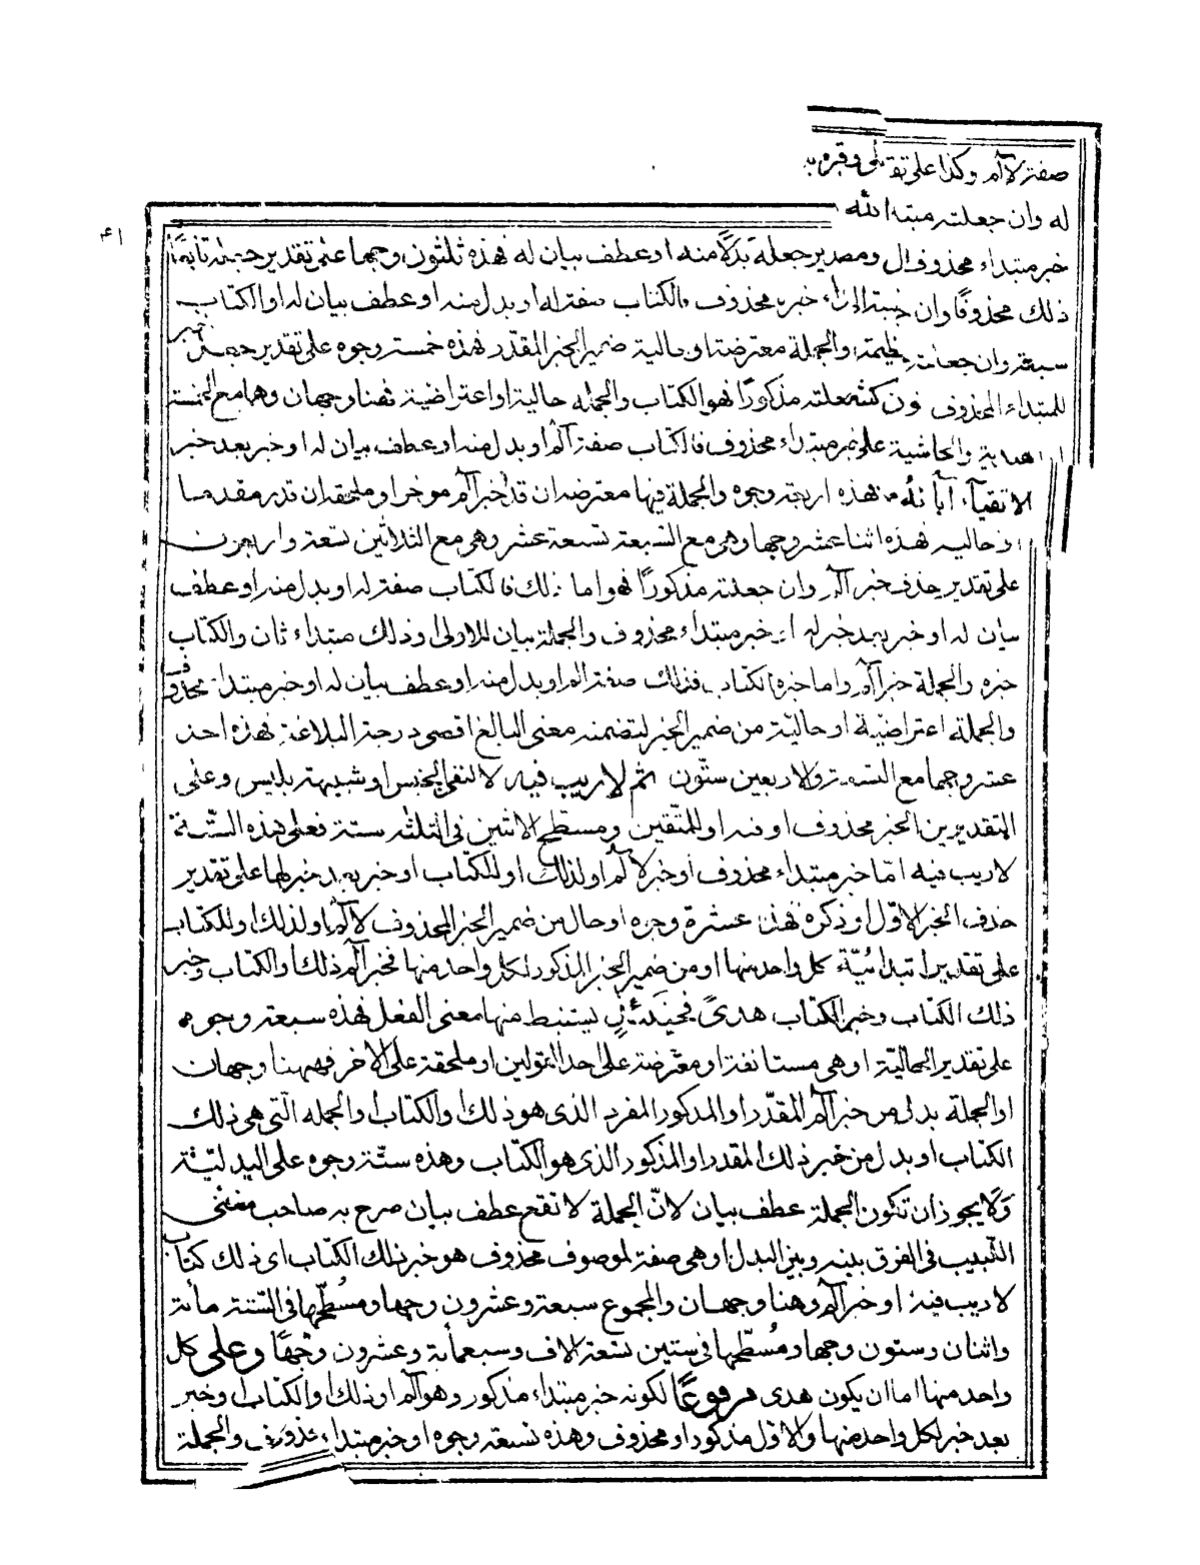 ٤١
صفة لآلم وكذا على تقتلى وقره به
له وان جعلته مبتدا لله
خبر مبتداء محذوف ال ومصدير جعلة بدلًا منه او عطف بيان له فهذه ثلثون وجها على تقدير
ذلك محذوفًا وان خبره محذوف فالكتاب صفة له او بدل منه او عطف بيان له او الكتاب
سبعة وان جعلت والجملة معترضة او حالية ضمير الخبر المقدر فهذه خمسة وجوه على تقدير جعلة خبر
للمبتداء المحذوف مذكورًا فهو الكتاب والجملة حالية او اعتراضية فهنا وجهان وهما مع الخمسة
والحاشية على مبتداء محذوف فالكتاب صفة آلم او بدل منه او عطف بيان له او خبر بعد خبر
الاتقياء فهذه اربعة وجوه والجملة فيها معترضة ان قدّر خبر آلم موخرا وملحقة ان قدر مقدما
او حالية فهذه اثنا عشر وجها وهى مع السبعة تسعة عشر وهى مع الثلاثين تسعة واربعون
على تقدير حذف خبر آلم وان جعلته مذكورًا فهو اما ذلك فالكتاب صفة له او بدل منه او عطف
بيان له او خبر بعد خبر له او خبر مبتداء محذوف والجملة بيان للاولى او ذلك مبتداء ثان والكتاب
خبره والجملة خبر آلم واما خبره الكتاب فذلك صفة الم او بدل منه او عطف بيان له او خبر مبتدا محذوف
والجملة اعتراضيّة او حاليّة من ضمير الخبر لتضمنه معنى البالغ اقصى درجة البلاغة فهذه احد
عشر وجها مع التسعة والاربعين ستّون ثم لا ريب فيه لا لنفى الجنس او شبيهة بليس وعلى
التقديرين الخبر محذوف او فيه او للمتّقين ومسطّح الاثنين فى الثلثة ستة فعلى هذه الستّة
لا ريب فيه امّا خبر مبتداء محذوف او خبر لآلم او لذلك او للكتاب او خبر بعد خبر لها على تقدير
حذف الخبر الاوّل او ذكره فهذه عشرة وجوه او حال من ضمير الخبر المحذوف لآلم او لذلك او للكتاب
على تقدير ابتدائيّة كل واحد منها او من ضمير الخبر المذكور لكل واحد منها فخبر آلم ذلك والكتاب وخبر
ذلك الكتاب وخبر الكتاب هدىً فحينَئِذٍ يستنبط منها معنى الفعل فهذه سبعة وجوه
على تقدير الحاليّة او هى مستانفة او معترضة على احد القولين او ملحقة على الاخر فههنا وجهان
او الجملة بدل من خبر آلم المقدّر او المذكور المفرد الذى هو ذلك او الكتاب او الجملة الّتى هى ذلك
الكتاب او بدل من خبر ذلك المقدر او المذكور الذى هو الكتاب وهذه ستّة وجوه على البدليّة
وَلا يجوز ان تكون الجملة عطف بيان لانّ الجملة لا تقع عطف بيان صرح به صاحب مغنى
اللّبيب فى الفرق بينه وبين البدل او هى صفة لموصوف محذوف هو خبر ذلك الكتاب اى ذلك كتاب
لا ريب فيه او خبر آلم وهنا وجهان والمجموع سبعة وعشرون وجها ومُسطّحها فى الستّة مأئة
واثنان وستون وجها ومُسطّحها فى ستين تسعة الاف وسبعمأية وعشرون وجهًا وعلى كل
واحد منها اما ان يكون هدى مرفوعًا لكونه خبر مبتداء مذكور وهو آلم او ذلك او الكتاب او خبر
بعد خبر لكل واحد منها والاوّل مذكور او محذوف وهذه تسعة وجوه او خبر مبتداء محذوف والجملة